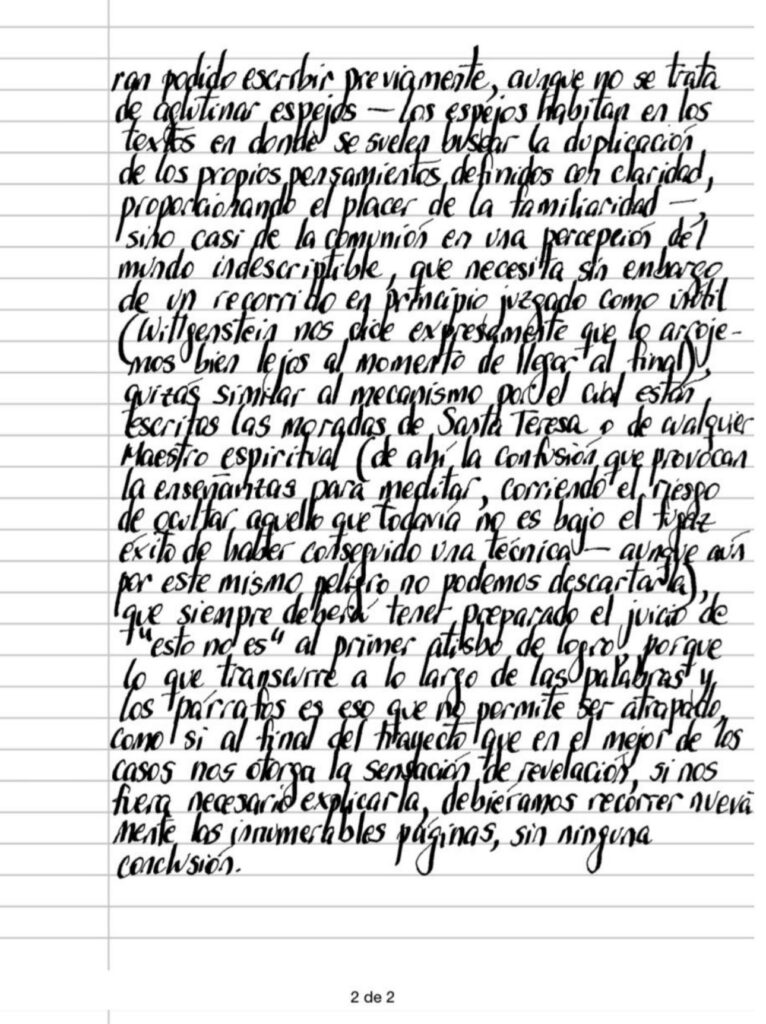 ran podido escribir previamente, aunque no se trata
de aglutinar espejos — los espejos habitan en los
textos en donde se suelen buscar la duplicación
de los propios pensamientos definidos con claridad,
proporcionando el placer de la familiaridad —,
sino casi de la comunión en una percepción del
mundo indescriptible, que necesita sin embargo
de un recorrido en principio juzgado como inútil
(Wittgenstein nos dice expresamente que lo arroje-
mos bien lejos al momento de llegar al final),
quizás similar al mecanismo por el cual están
escritas las moradas de Santa Teresa o de cualquier
Maestro espiritual (de ahí la confusión que provocan
la enseñanzas para meditar, corriendo el riesgo
de ocultar aquello que todavía no es bajo el fugaz
éxito de haber conseguido una técnica — aunque aún
por este mismo peligro no podemos descartarla),
que siempre deberá tener preparado el juicio de
"esto no es" al primer atisbo de logro, porque
lo que transcurre a lo largo de las palabras y
los párrafos es eso que no permite ser atrapado,
como si al final del trayecto que en el mejor de los
casos nos otorga la sensación de revelación, si nos
fuera necesario explicarla, debiéramos recorrer nueva
mente las innumerables páginas, sin ninguna
conclusión.
2 de 2